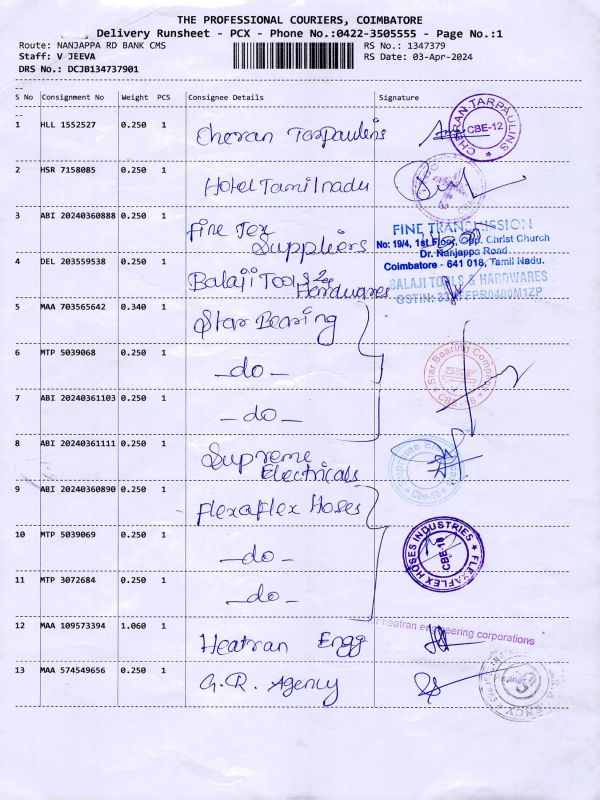 THE PROFESSIONAL COURIERS, COIMBATORE
Delivery Runsheet - PCX - Phone No.:0422-3505555 - Page No.:1
Route: NANJAPPA RD BANK CMS
RS No.: 1347379
Staff: V JEEVA
RS Date: 03-Apr-2024
DRS No.: DCJB134737901
S No Consignment No Weight PCS Consignee Details Signature
1 HLL 1552527 0.250 1 Cheran Tarpaulins
CHERAN TARPAULINS CBE-12
2 HSR 7158085 0.250 1 Hotel Tamilnadu
3 ABI 20240360888 0.250 1 Fine Tex
Suppliers
FINE TRANSMISSION
No: 19/4, 1st Floor, Opp. Christ Church
Dr. Nanjappa Road
Coimbatore - 641 018, Tamil Nadu.
4 DEL 203559538 0.250 1 Balaji Tools &
Hardwares
BALAJI TOOLS & HARDWARES
GSTIN:
5 MAA 703565642 0.340 1 Star Bearing
6 MTP 5039068 0.250 1 -do-
Star Bearing Company
7 ABI 20240361103 0.250 1 -do-
8 ABI 20240361111 0.250 1 Supreme
Electricals
Cbe-18
9 ABI 20240360890 0.250 1 Flexaflex Hoses
10 MTP 5039069 0.250 1 -do-
FLEXAFLEX HOSES INDUSTRIES CBE-18
11 MTP 3072684 0.250 1 -do-
12 MAA 109573394 1.060 1 Heatran Engg
heatran engineering corporations
13 MAA 574549656 0.250 1 G.R. Agency